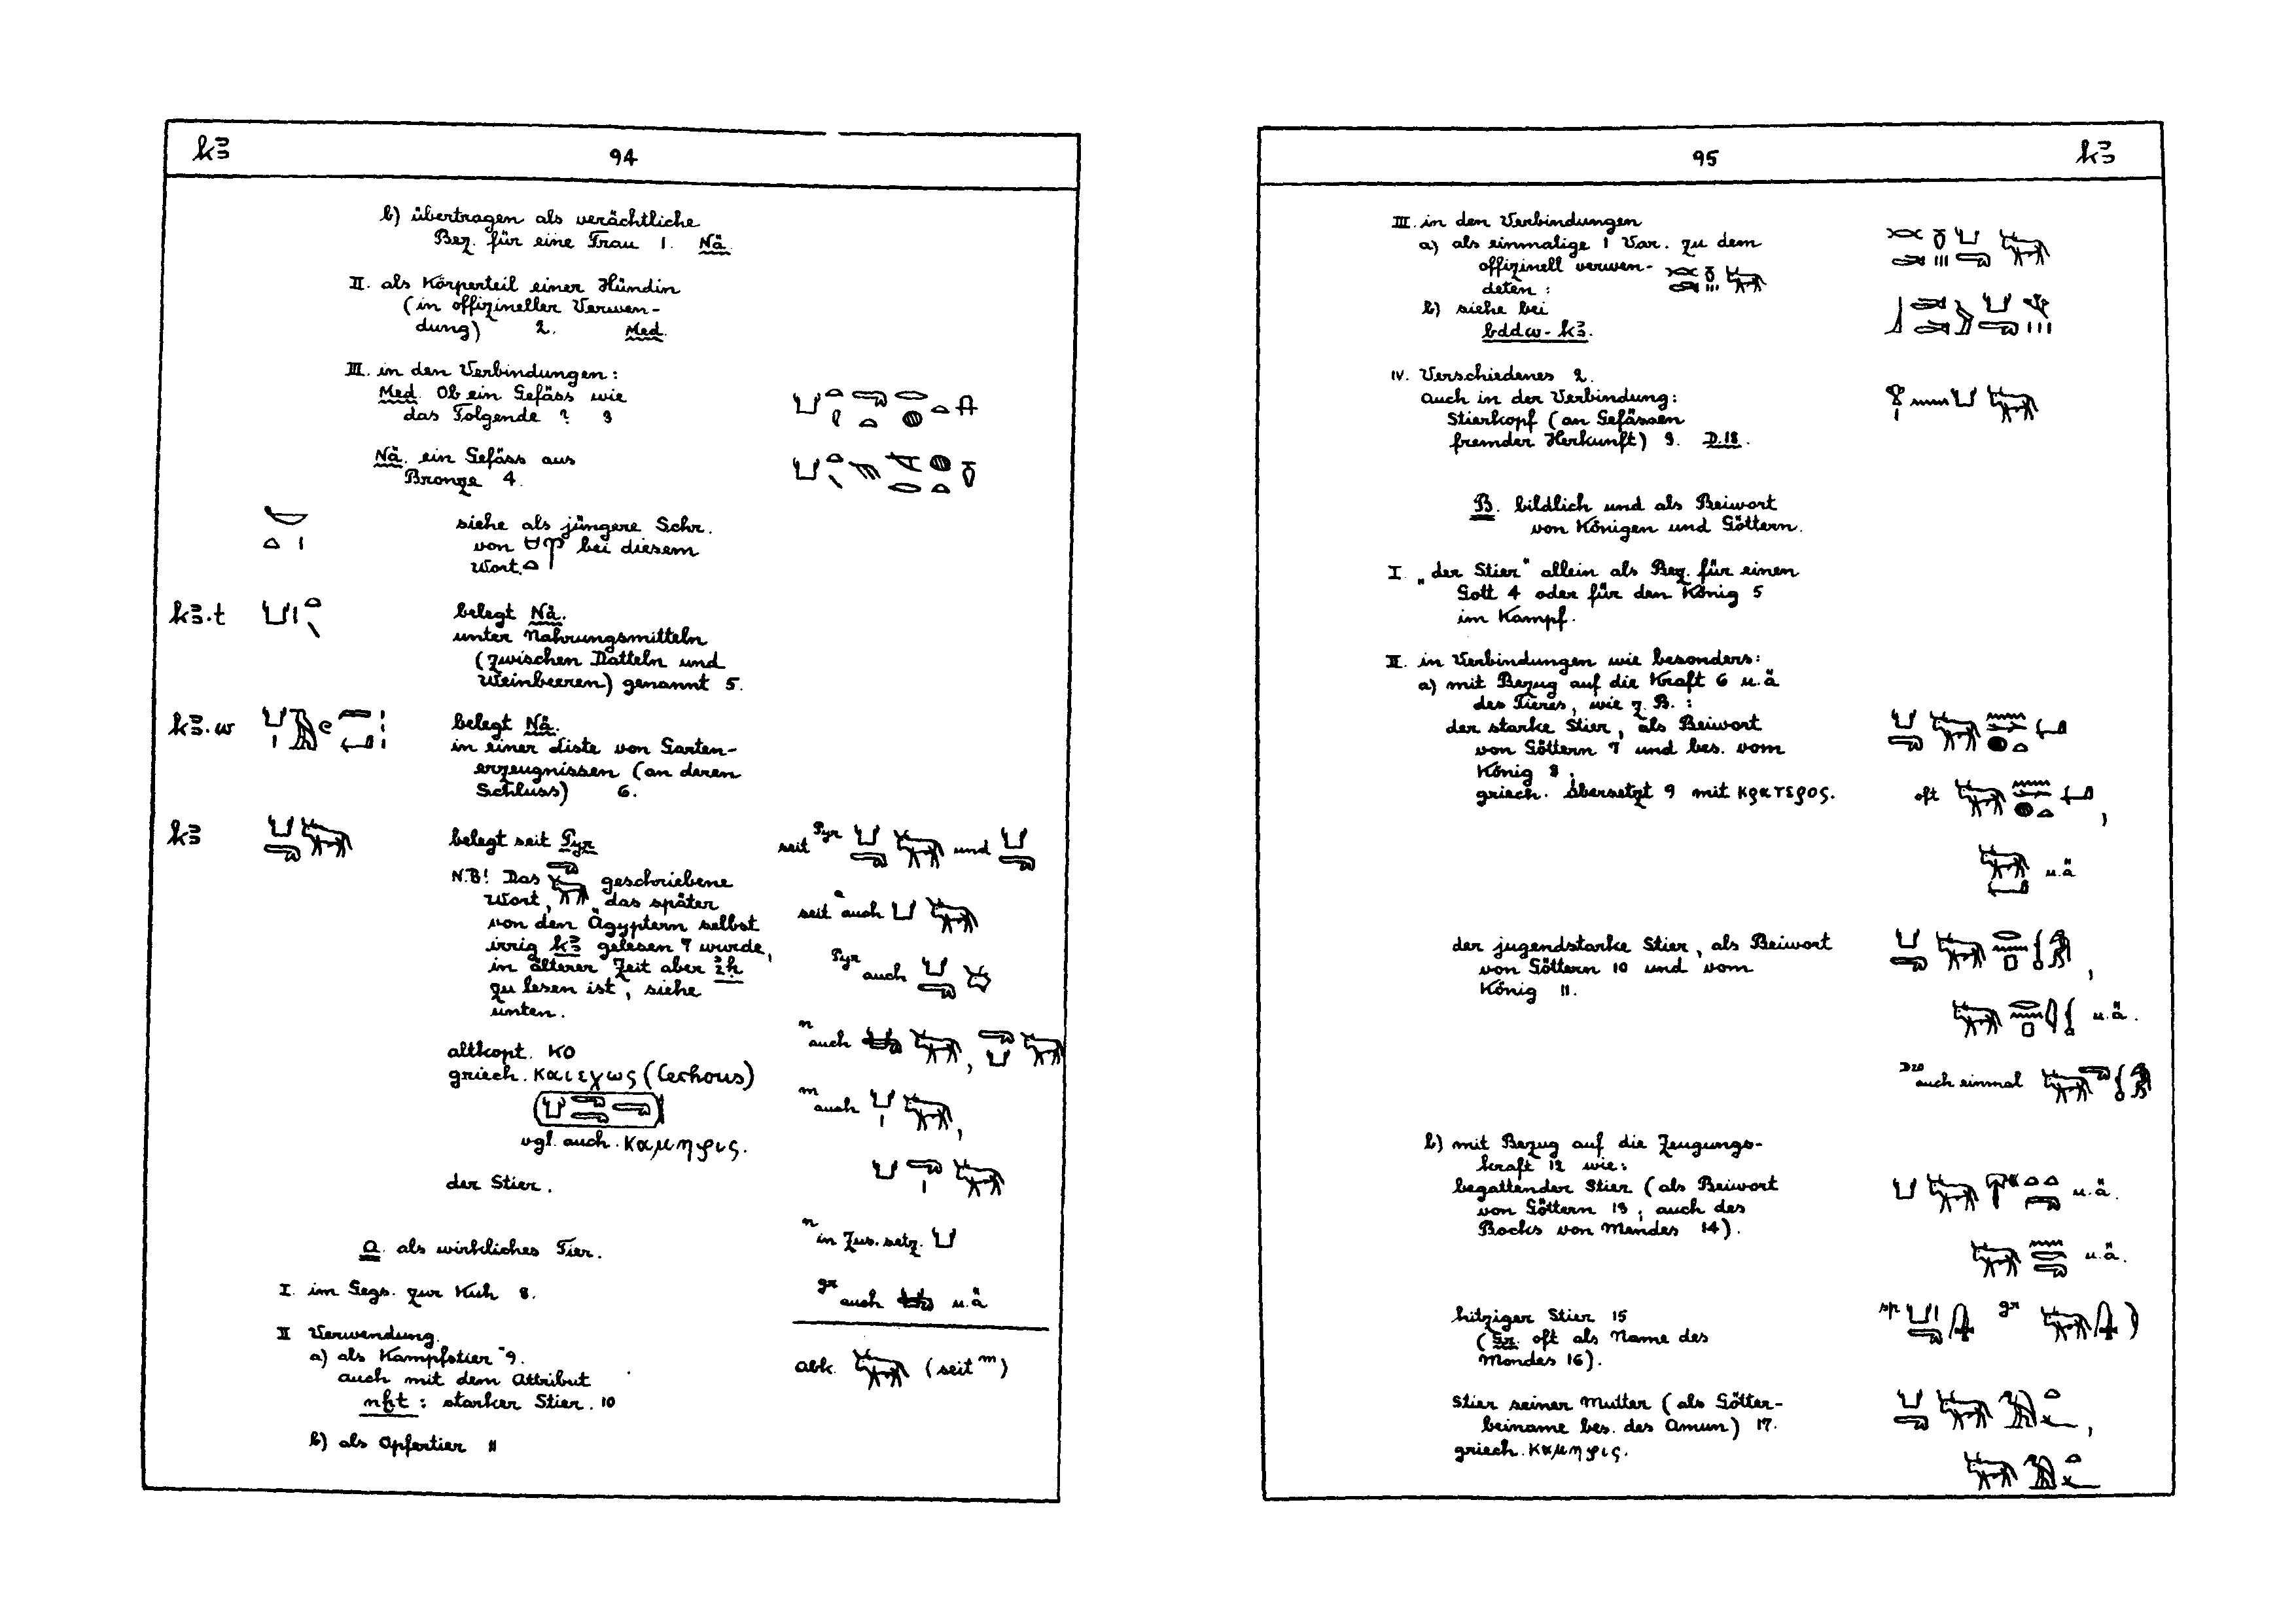 k3
94
b) übertragen als verächtliche
Bez. für eine Frau 1. Nä.
II. als Körperteil einer Hündin
(in offizineller Verwen-
dung) 2. Med.
III. in den Verbindungen:
Med. Ob ein Gefäss wie
das Folgende? 3
Nä. ein Gefäss aus
Bronze 4.
siehe als jüngere Schr.
von bei diesem
Wort.
k3.t
belegt Nä.
unter Nahrungsmitteln
(zwischen Datteln und
Weinbeeren) genannt 5.
k3.w
belegt Nä.
in einer Liste von Garten-
erzeugnissen (an deren
Schluss) 6.
k3
belegt seit Pyr.
N.B! Das geschriebene
Wort, das später
von den Ägyptern selbst
irrig k3 gelesen 7 wurde,
in älterer Zeit aber iḥ
zu lesen ist, siehe
unten.
altkopt. KO
griech. Καιεχως (Cechous)
vgl. auch Καμηφις.
der Stier.
seit Pyr und
seit a auch
Pyr auch
n auch ,
m auch ,
n in Zus.setz.
gr auch u.ä
abk. (seit m)
a. als wirkliches Tier.
I. im Gegs. zur Kuh 8.
II Verwendung.
a) als Kampfstier 9.
auch mit dem Attribut
nḫt: starker Stier. 10
b) als Opfertier 11
95
k3
III. in den Verbindungen
a) als einmalige 1 Var. zu dem
offizinell verwen-
deten:
b) siehe bei
bddw-k3.
IV. Verschiedenes 2.
auch in der Verbindung:
Stierkopf (an Gefässen
fremder Herkunft) 3. D.18.
B. bildlich und als Beiwort
von Königen und Göttern.
I. „der Stier" allein als Bez. für einen
Gott 4 oder für den König 5
im Kampf.
II. in Verbindungen wie besonders:
a) mit Bezug auf die Kraft 6 u.ä
des Tieres, wie z.B.:
der starke Stier, als Beiwort
von Göttern 7 und bes. vom
König 8;
griech. übersetzt 9 mit κρατερος.
oft ,
u.ä
der jugendstarke Stier, als Beiwort
von Göttern 10 und vom
König 11.
,
u.ä.
D20 auch einmal
b) mit Bezug auf die Zeugungs-
kraft 12 wie:
begattender Stier (als Beiwort
von Göttern 13, auch des
Bocks von Mendes 14).
u.ä.
u.ä.
hitziger Stier 15
(Gr. oft als Name des
Mondes 16).
sp gr
Stier seiner Mutter (als Götter-
beiname bes. des Amun) 17.
griech. Καμηφις.